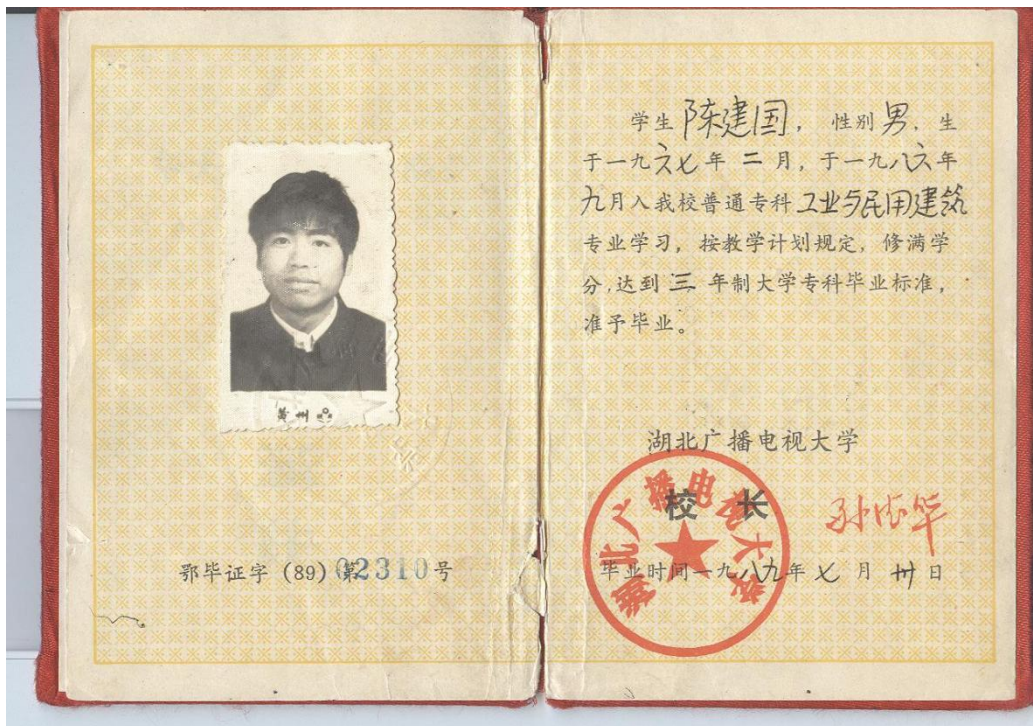 黄州
鄂毕证字 (89) 第02310号
学生陈建国，性别男，生
于一九六七年二月，于一九八六年
九月入我校普通专科工业与民用建筑
专业学习，按教学计划规定，修满学
分，达到三年制大学专科毕业标准，
准予毕业。
湖北广播电视大学
湖北广播电视大学
校 长
毕业时间一九八九年七月卅日